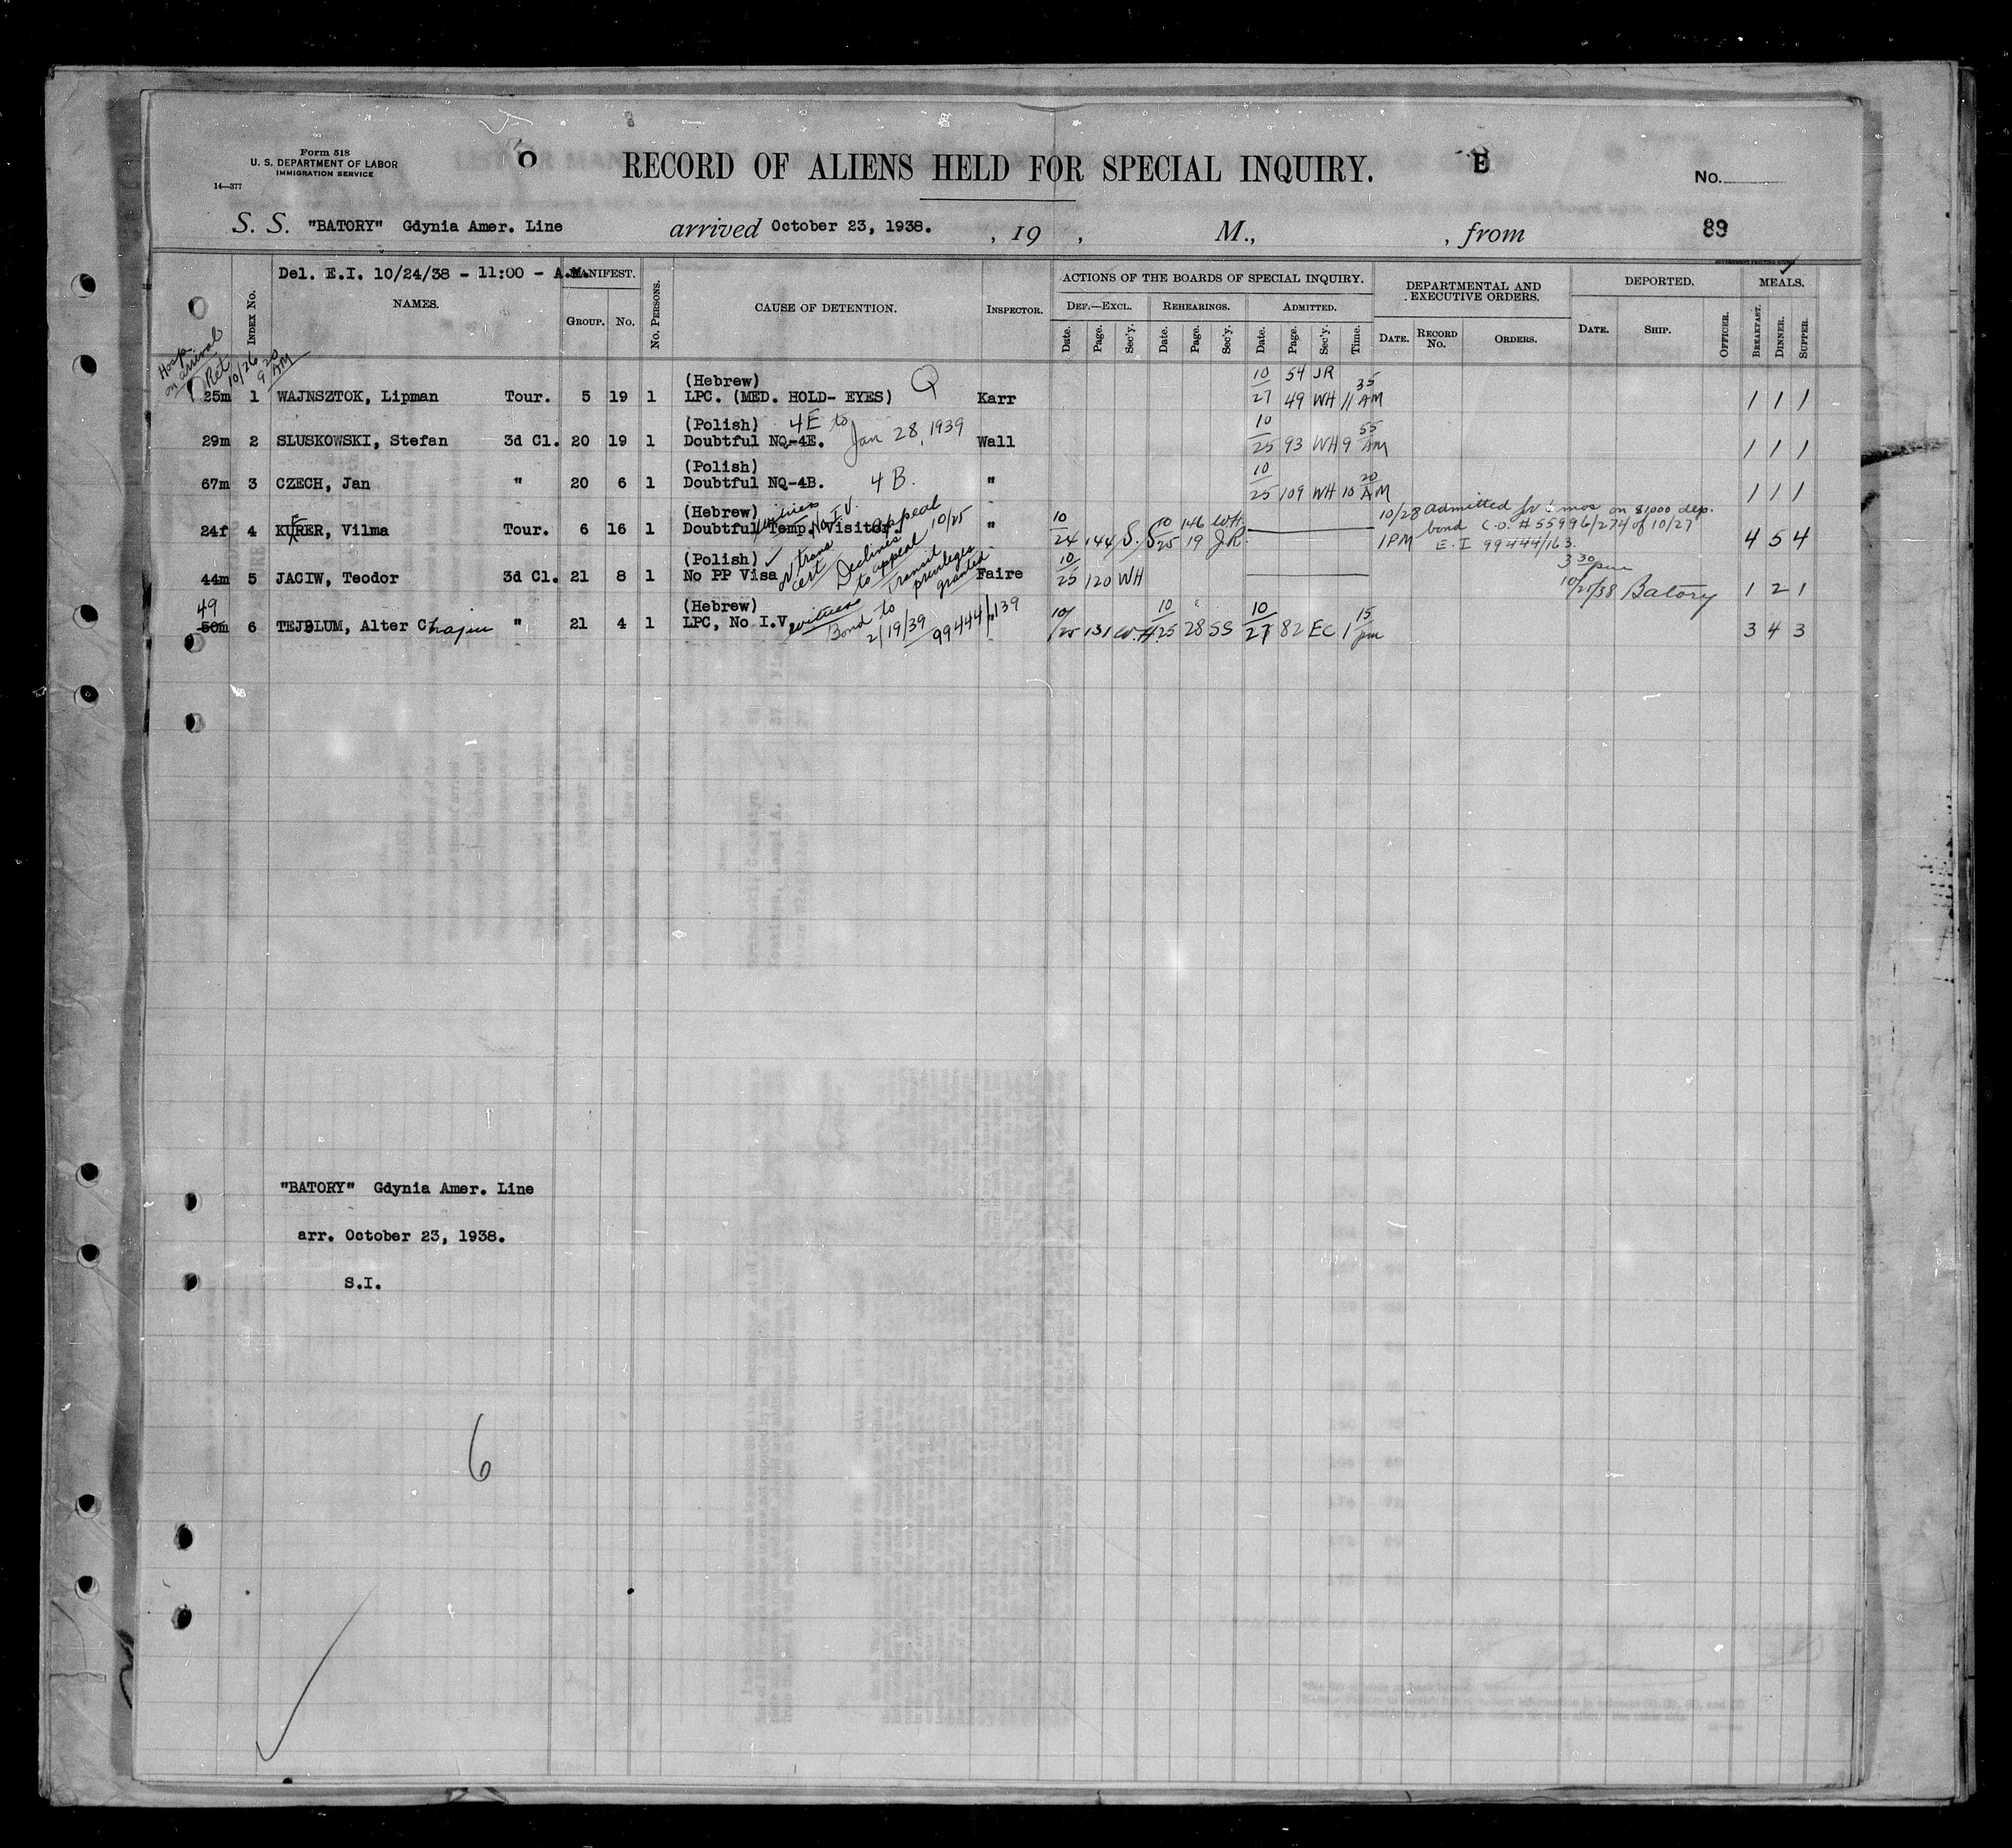 Form 518
U. S. DEPARTMENT OF LABOR
IMMIGRATION SERVICE
14—377
O
RECORD OF ALIENS HELD FOR SPECIAL INQUIRY.
E
No.
S. S. "BATORY" Gdynia Amer. Line arrived October 23, 1938. , 19 , M., , from
89
Del. E.I. 10/24/38 - 11:00 - A.M.
INDEX No.
NAMES.
MANIFEST.
GROUP. No.
No. PERSONS.
CAUSE OF DETENTION.
INSPECTOR.
ACTIONS OF THE BOARDS OF SPECIAL INQUIRY.
DEF.—EXCL. REHEARINGS. ADMITTED.
Date. Page. Sec'y. Date. Page. Sec'y. Date. Page. Sec'y. Time.
DEPARTMENTAL AND EXECUTIVE ORDERS.
DATE. RECORD No. ORDERS.
DEPORTED.
DATE. SHIP. OFFICER.
MEALS.
BREAKFAST. DINNER. SUPPER.
Hosp. on arrival
Ret. 10/26 9 20 AM
(Hebrew) Q 10 54 JR 35
25m 1 WAJNSZTOK, Lipman Tour. 5 19 1 LPC. (MED. HOLD- EYES) Karr 27 49 WH 11 AM 1 1 1
(Polish) 4E to Jan 28, 1939 10 55
29m 2 SLUSKOWSKI, Stefan 3d Cl. 20 19 1 Doubtful NQ-4E. Wall 25 93 WH 9 AM 1 1 1
(Polish) 10 20
67m 3 CZECH, Jan " 20 6 1 Doubtful NQ-4B. 4 B. " 25 109 WH 10 AM 1 1 1
(Hebrew) witness No I.V. appeal 10/25 10 10 146 W.H. 10/28 admitted for mos on $1,000 dep.
24f 4 KURER, Vilma Tour. 6 16 1 Doubtful Temp. Visitor. " 24 144 S.S 25 19 J.R. bond C.O. #55996/274 of 10/27 4 5 4
1 PM E.I 99444/163.
(Polish) N trans cert Declines to appeal Transit privileges granted 10 3 30 pm
44m 5 JACIW, Teodor 3d Cl. 21 8 1 No PP Visa Faire 25 120 WH Batory 1 2 1
49 (Hebrew) witness Bond to 2/19/39 99444/139 10/ 10 10 15
50m 6 TEJBLUM, Alter Chajim " 21 4 1 LPC, No I.V. " 25 131 W.H. 25 28 SS 27 82 EC 1 pm 3 4 3
"BATORY" Gdynia Amer. Line
arr. October 23, 1938.
S.I.
6